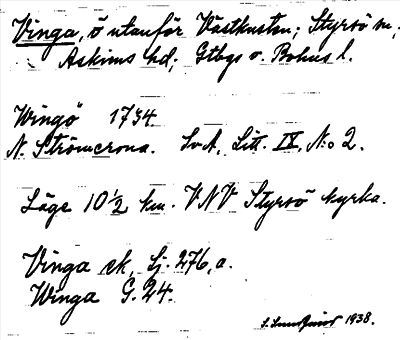 Vinga, ö utanför Västkusten; Styrsö sn;
Askims hd; Gtbgs o. Bohus l.
Wingö 1734
N. Strömcrona. SvA, Litt. IX, N:o 2.
Läge 10 1/2 km. VNV Styrsö kyrka.
Vinga ek, Sj. 276, a.
Winga G. 24.
1938.